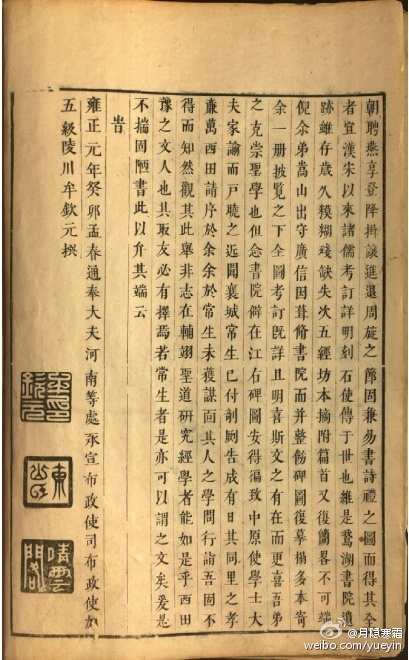 朝聘燕享登降揖讓進退周旋之節固兼易書詩禮之圖而得其全
者宜漢宋以來諸儒考訂詳明刻石使傳于世也維是鵞湖書院遺
跡雖存歲久糢糊殘缺失次五經坊本摘附篇首又復簡畧不可端
倪余弟嵩山出守廣信因葺脩書院而并整飭碑圖復摹搨多本寄
余一册披覽之下全圖考訂既詳且明喜斯文之有在而更喜吾弟
之克崇聖學也但念書院僻在江右碑圖安得徧致中原使學士大
夫家諭而戸曉之近聞襄城常生已付剞劂告成有日其同里之孝
廉萬西田請序於余余於常生未獲謀面其人之學問行詣吾固不
得而知然觀其此舉非志在輔翊聖道研究經學者能如是乎西田
豫之文人也其取友必有擇焉若常生者是亦可以謂之文矣爰是
不揣固陋書此以弁其端云
旹
雍正元年癸卯孟春通奉大夫河南等處承宣布政使司布政使加
五級陵川牟欽元撰
牟印欽元
東山
晴雲閣
@月隐寒霜
weibo.com/yueyin